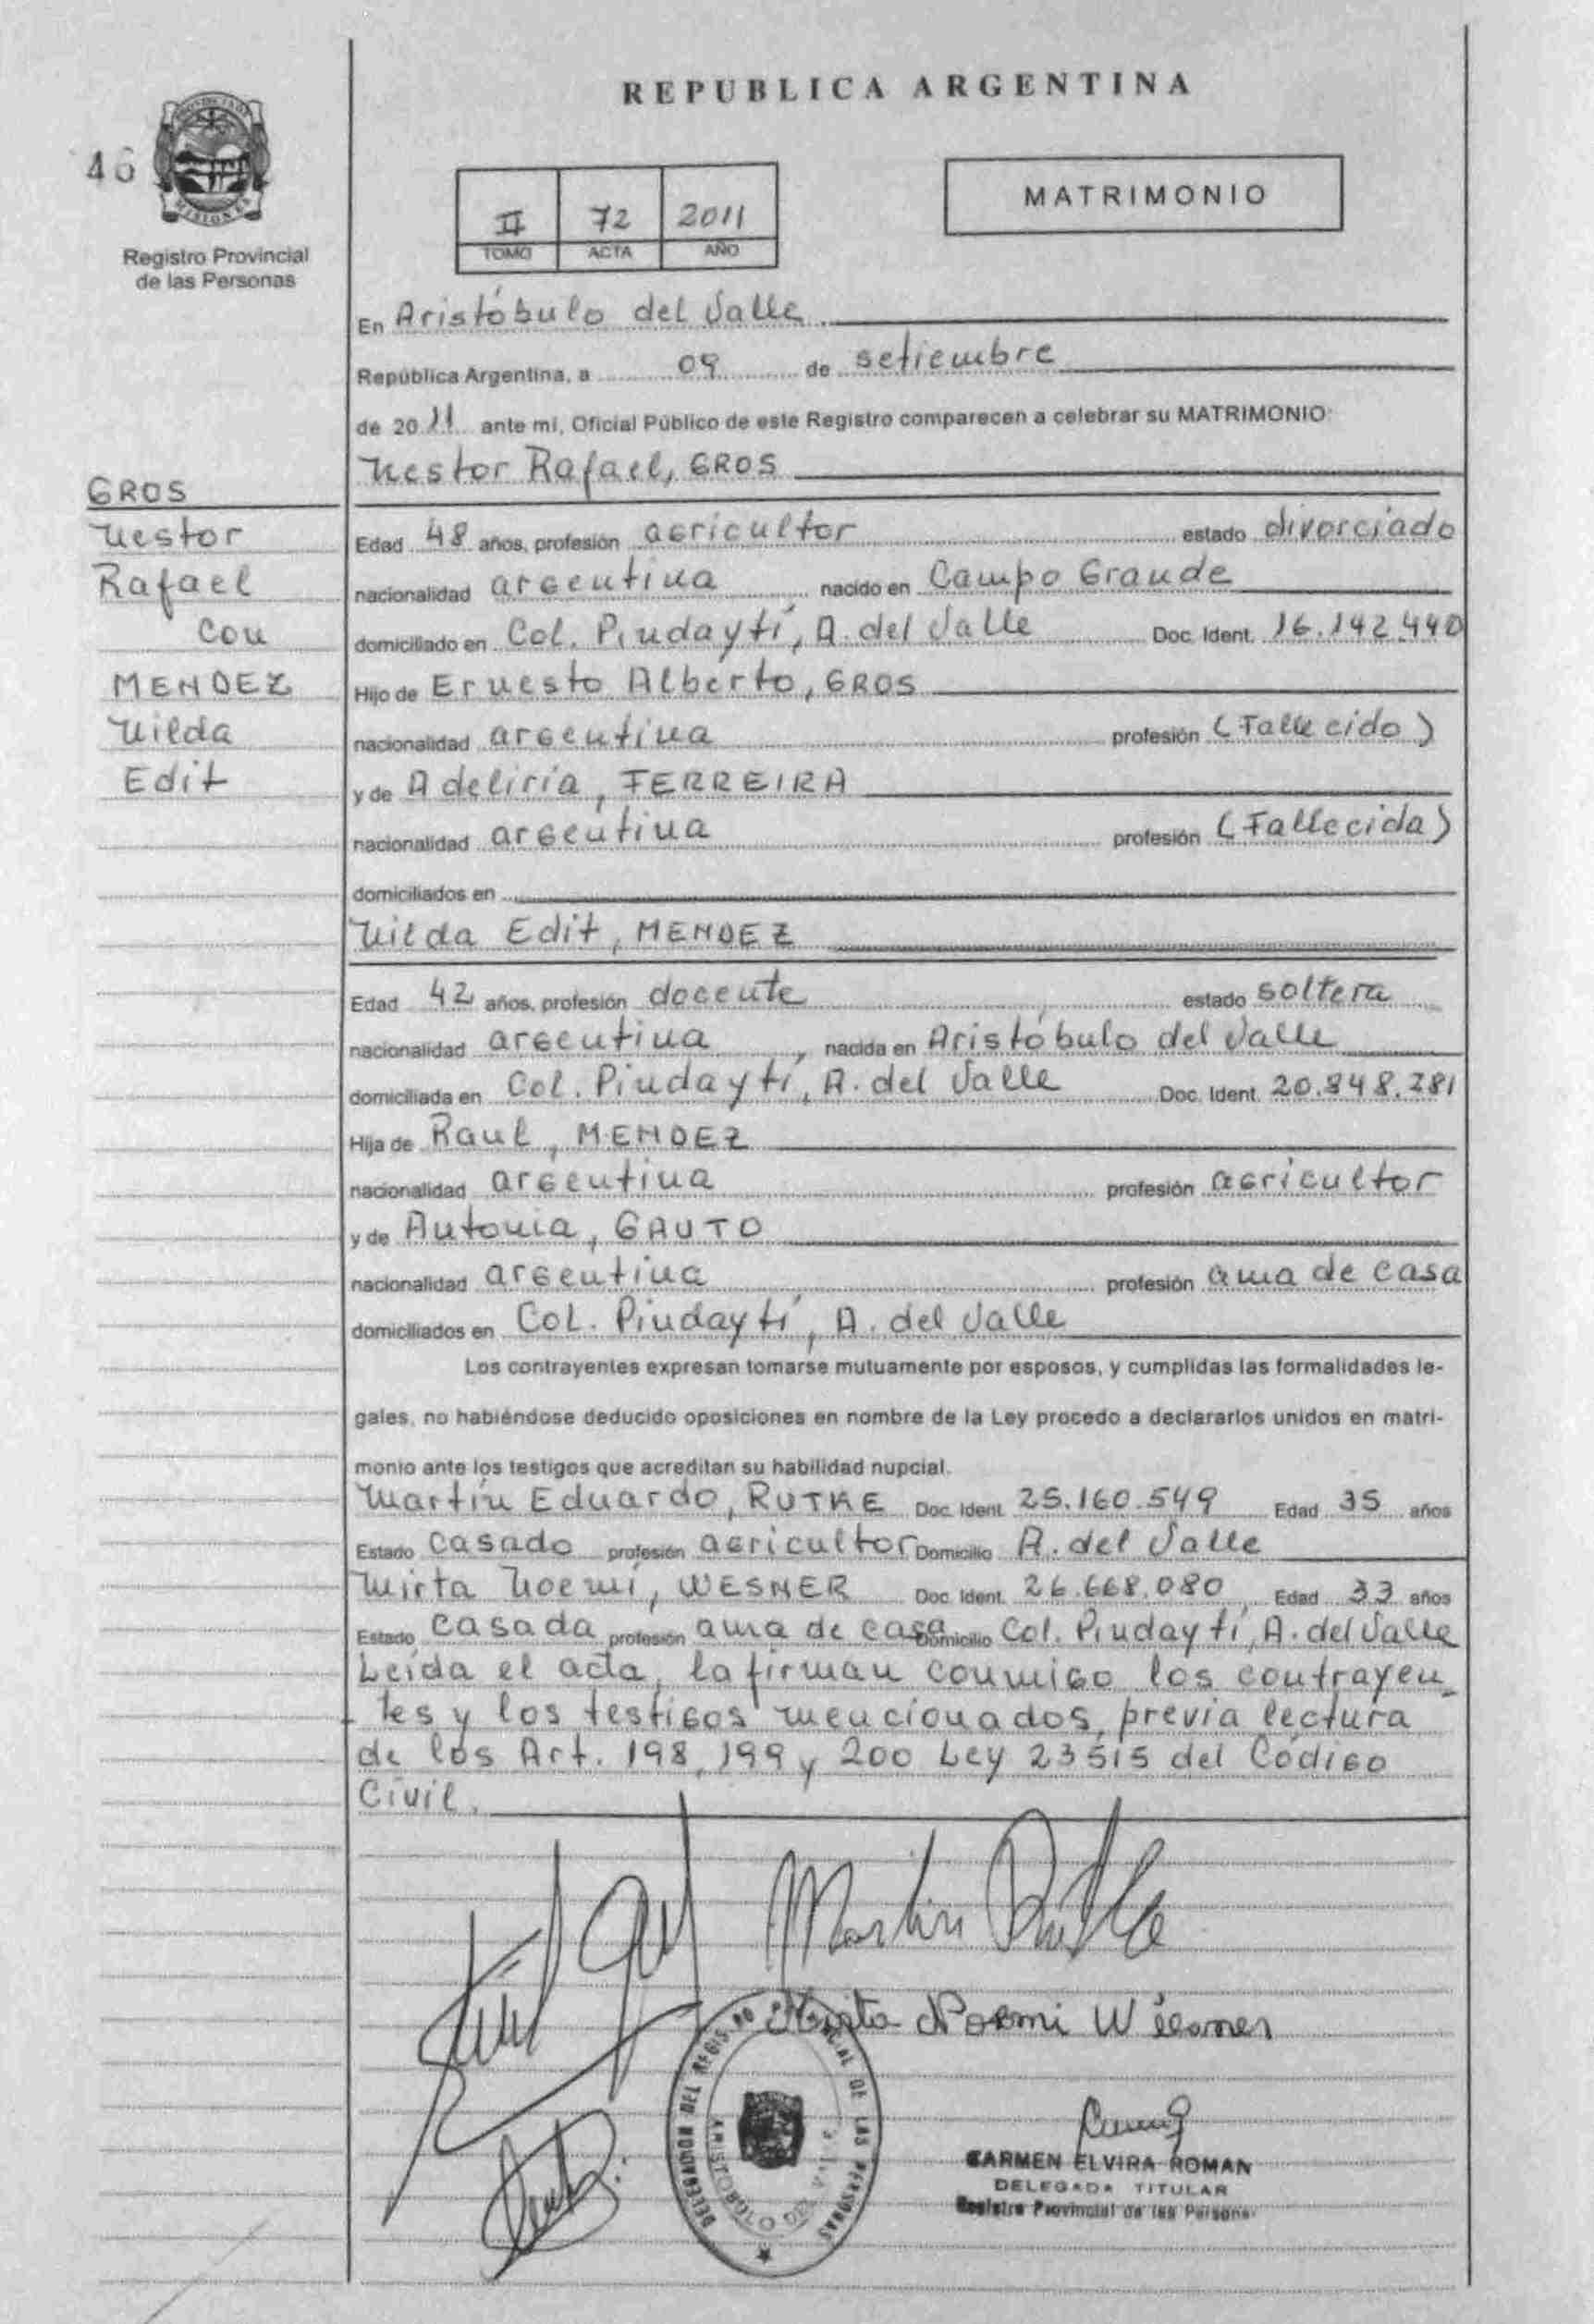 REPUBLICA ARGENTINA
46
MISIONES
Registro Provincial
de las Personas
II 72 2011
TOMO ACTA AÑO
MATRIMONIO
En Aristóbulo del Valle
República Argentina, a 09 de setiembre
de 2011 ante mi, Oficial Público de este Registro comparecen a celebrar su MATRIMONIO:
Nestor Rafael, GROS
GROS
Nestor
Rafael
con
MENDEZ
Nilda
Edit
Edad 48 años, profesión agricultor estado divorciado
nacionalidad argentina nacido en Campo Grande
domiciliado en Col. Pindaytí, A. del Valle Doc. Ident. 16.142.440
Hijo de Ernesto Alberto, GROS
nacionalidad argentina profesión (Fallecido)
y de Adeliria, FERREIRA
nacionalidad argentina profesión (Fallecida)
domiciliados en
Nilda Edit, MENDEZ
Edad 42 años, profesión docente estado soltera
nacionalidad argentina, nacida en Aristóbulo del Valle
domiciliada en Col. Pindaytí, A. del Valle Doc. Ident. 20.848.281
Hija de Raul, MENDEZ
nacionalidad argentina profesión agricultor
y de Antonia, GAUTO
nacionalidad argentina profesión ama de casa
domiciliados en Col. Pindaytí, A. del Valle
Los contrayentes expresan tomarse mutuamente por esposos, y cumplidas las formalidades le-
gales, no habiéndose deducido oposiciones en nombre de la Ley procedo a declararlos unidos en matri-
monio ante los testigos que acreditan su habilidad nupcial.
Martín Eduardo, RUTKE Doc. Ident. 25.160.549 Edad 35 años
Estado casado profesión agricultor Domicilio A. del Valle
Mirta Noemí, WESNER Doc. Ident. 26.668.080 Edad 33 años
Estado casada profesión ama de casa Domicilio Col. Pindaytí, A. del Valle
Leída el acta, la firman conmigo los contrayen_
tes y los testigos mencionados, previa lectura
de los Art. 198, 199 y 200 Ley 23515 del Código
Civil.
Martin Rutke
Mirta Noemi Wesner
DELEGACION DEL REGISTRO PROVINCIAL DE LAS PERSONAS
ARISTOBULO DEL VALLE
CARMEN ELVIRA ROMAN
DELEGADA TITULAR
Registro Provincial de las Personas